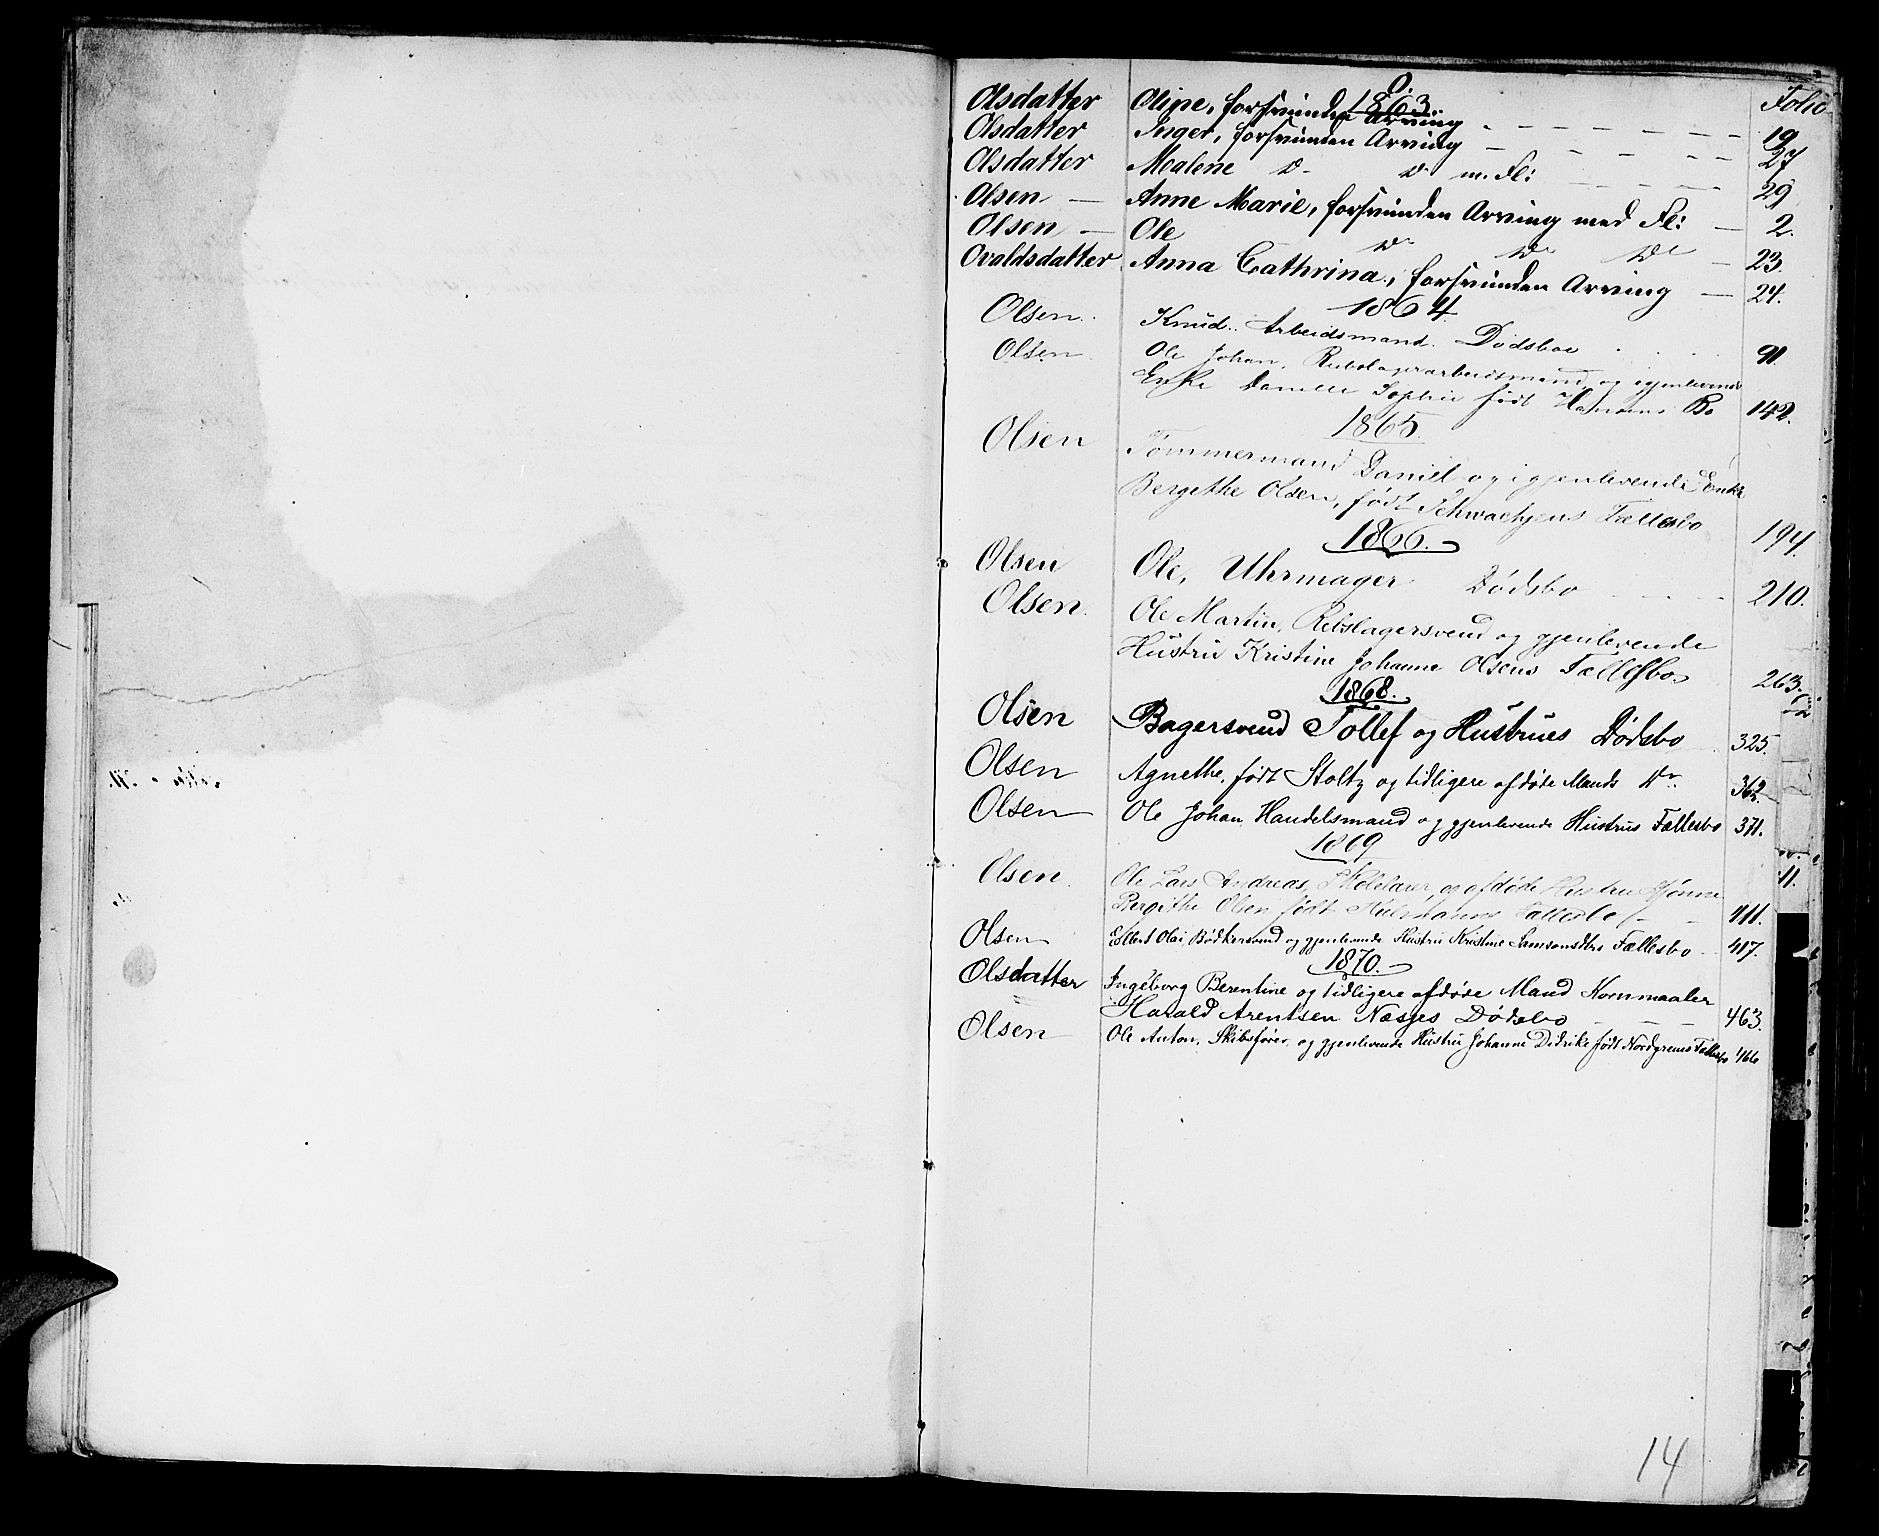 O.
1863. Folio
Olsdatter Oline, forsvunden Arving 19
Olsdatter Inger, forsvunden Arving 27
Olsdatter Malene Do Do m. Fl: 29
Olsen Anne Marie, forsvunden Arving med Fl: 2.
Olsen Ole Do Do Do 23.
Ovaldsdatter Anna Cathrina, forsvunden Arving 24.
1864
Olsen. Knud. Arbeidsmand. Dødsboe 91.
Olsen Ole Johan, Rebslagerarbeidsmand, og igjenlevende
Enke Danelle Sophie født Hansens Bo 142.
1865.
Olsen Tømmermand Daniel og igjenlevende Enke
Bergethe Olsen, født Fællesbo 194.
1866.
Olsen Ole, Uhrmager Dødsbo 210.
Olsen. Ole Martin, Rebslagersvend og gjenlevende
Hustru Kristine Johanne Olsens Fællesbo 263.
1868.
Olsen Bagersvend Tollef og Hustrues Dødsbo 325.
Olsen Agnethe, født Stoltz og tidligere afdøde Mands Do 362.
Olsen Ole Johan, Handelsmand og gjenlevende Hustrus Fællesbo 371.
1869
Olsen. Ole Lars Andreas, Skolelærer, og afdøde Hustru
Bergithe Olsen født Fællesbo 411.
Olsen Ellert Olai, Bødkersvend og gjenlevende Hustru Kristine Samsonsdtrs Fællesbo 417.
1870.
Olsdatter Ingeborg Berentine og tidligere afdøde Mand Kornmaaler
Harald Arentsen Næsjes Dødsbo 463.
Olsen Ole Anton, Skibsfører, og gjenlevende Hustru Johanne Didrike født Nordgreens Fællesbo 466
14